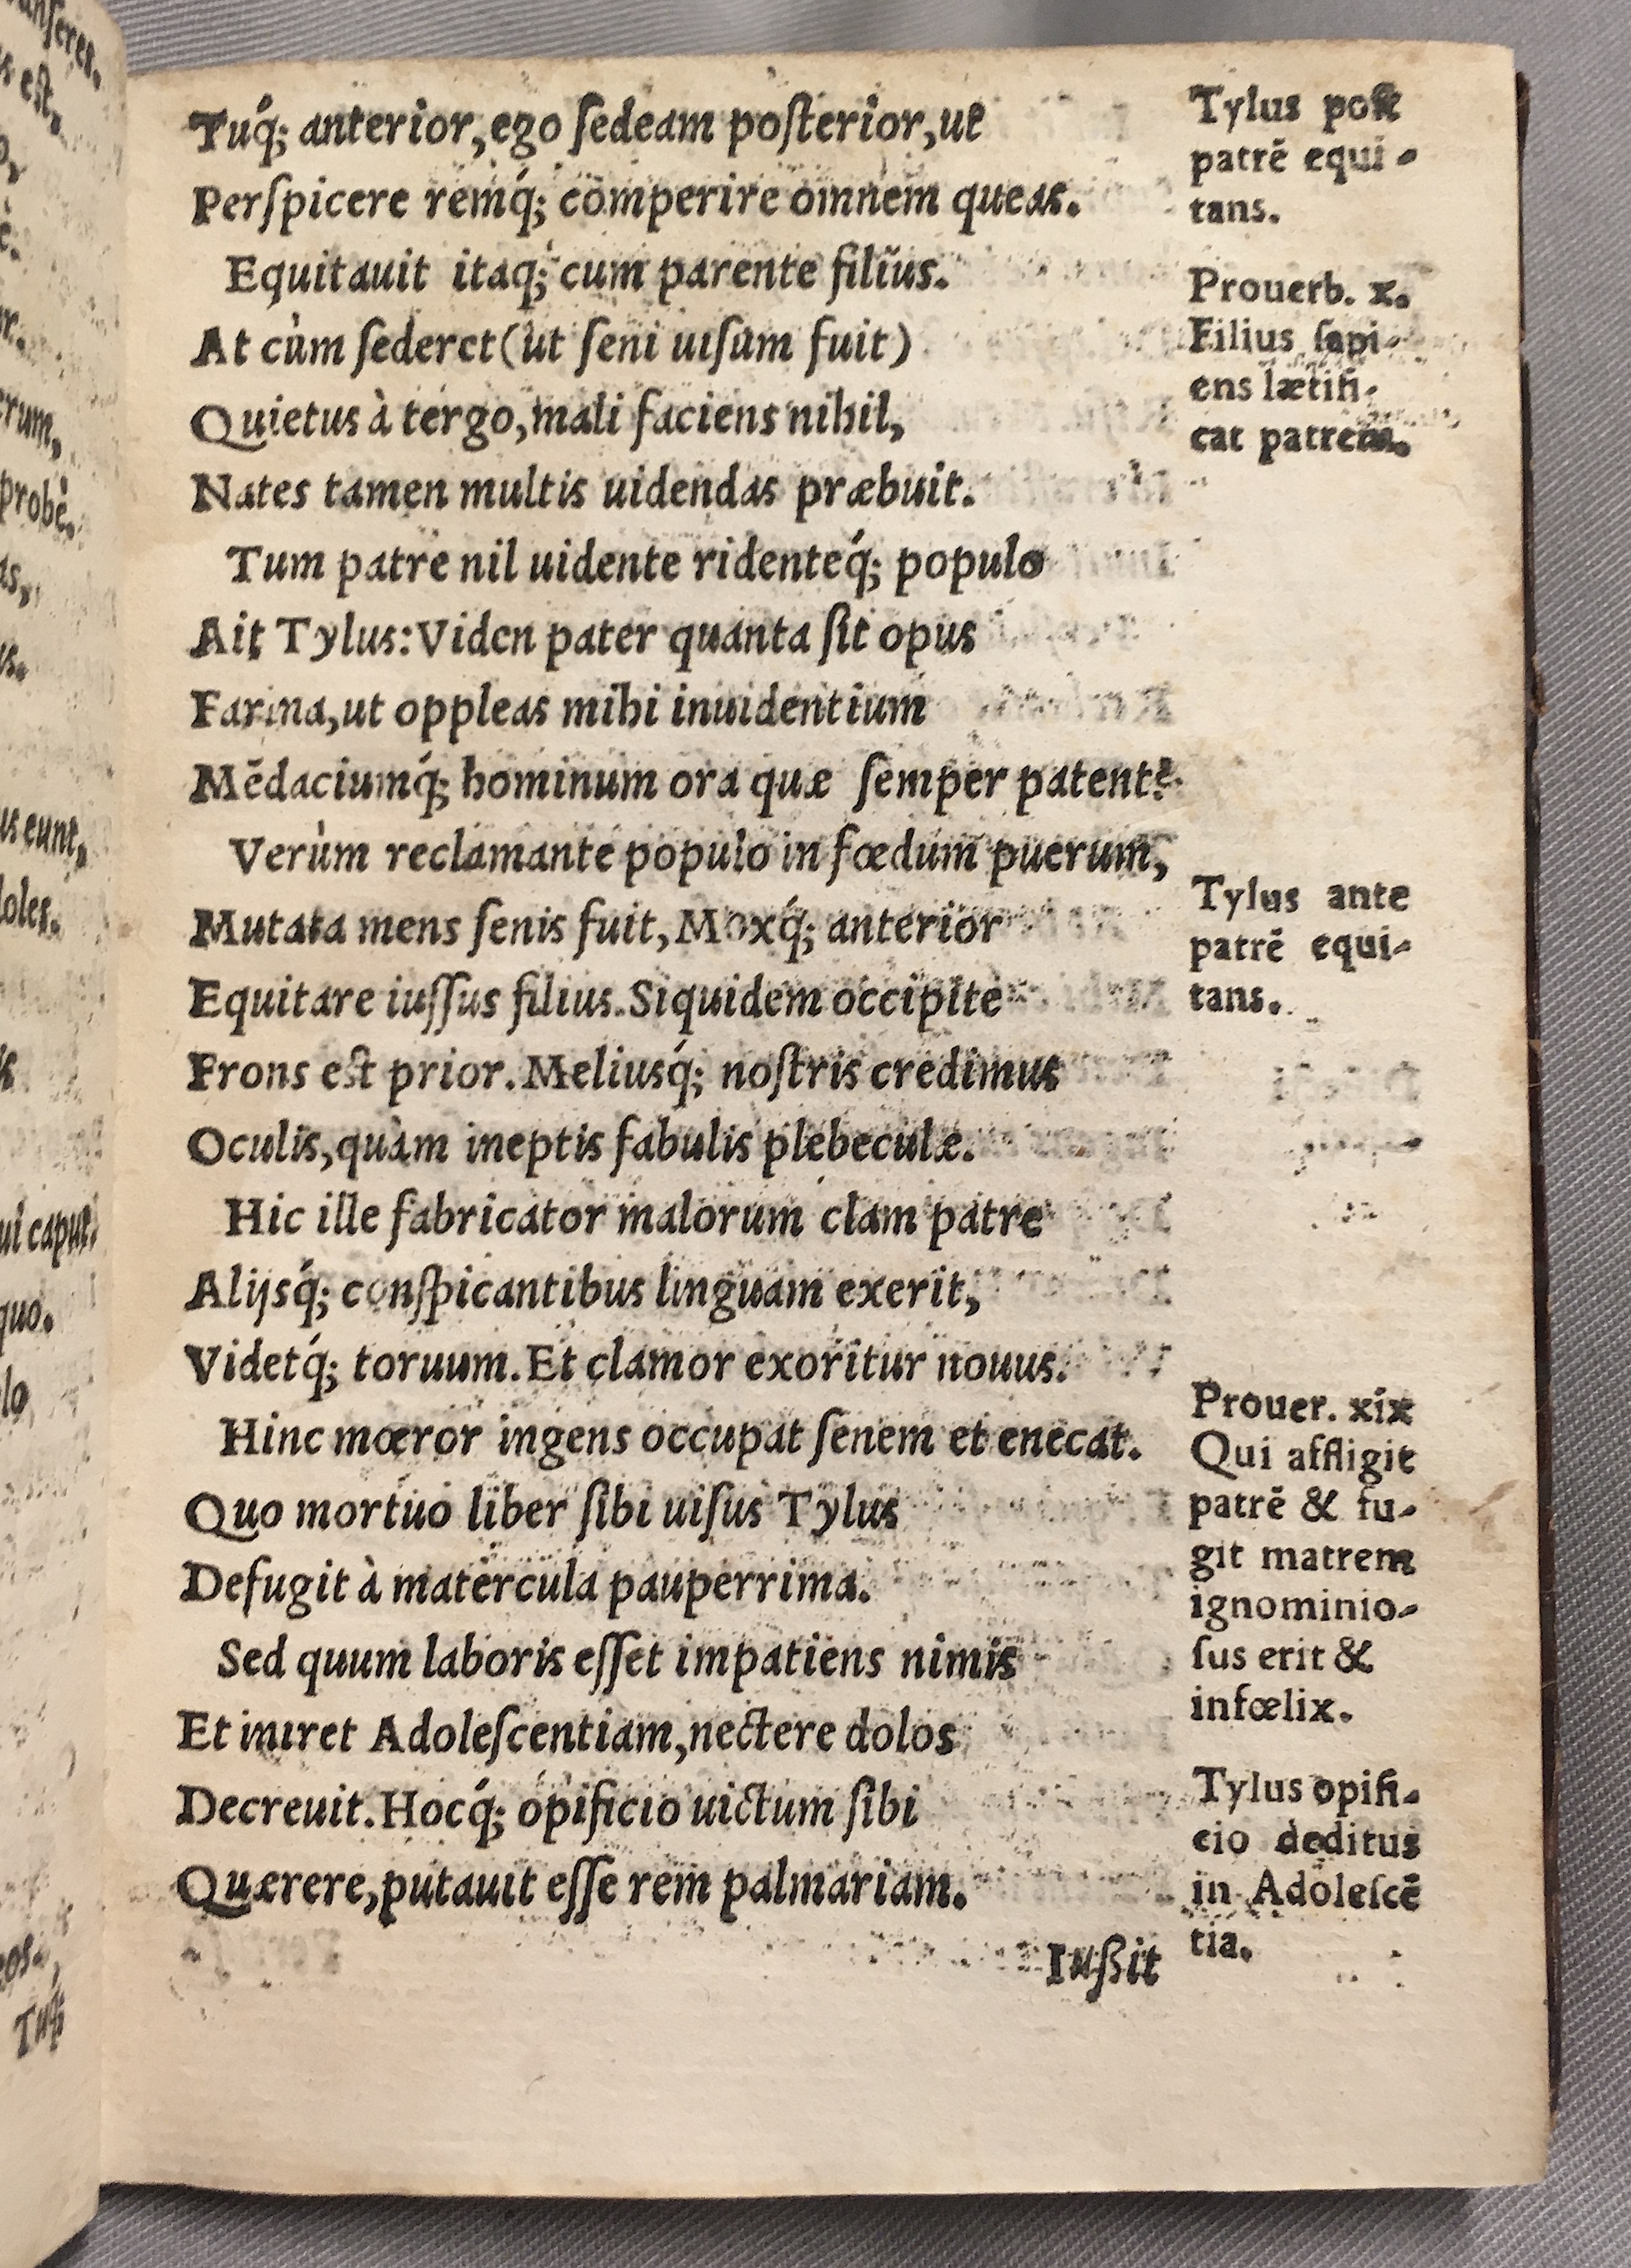 Tuq́; anterior, ego ſedeam poſterior, ut
Perſpicere remq́; comperire omnem queas.
Equitauit itaq; cum parente filius.
At cùm ſederet (ut ſeni uiſum fuit)
Quietus à tergo, mali faciens nihil,
Nates tamen multis uidendas præbuit.
Tum patre nil uidente ridenteq́; populo
Ait Tylus: Viden pater quanta ſit opus
Farina, ut oppleas mihi inuidentium
Mēdaciumq́; hominum ora quæ ſemper patent?
Verùm reclamante populo in fœdum puerum,
Mutata mens ſenis fuit, Moxq́; anterior
Equitare iuſſus filius. Siquidem occipite
Frons eſt prior. Meliusq́; noſtris credimus
Oculis, quàm ineptis fabulis plebeculæ.
Hic ille fabricator malorum clam patre
Alijsq́; conſpicantibus linguam exerit,
Videtq́; toruum. Et clamor exoritur nouus.
Hinc mœror ingens occupat ſenem et enecat.
Quo mortuo liber ſibi uiſus Tylus
Defugit à matercula pauperrima.
Sed quum laboris eſſet impatiens nimis
Et iniret Adoleſcentiam, nectere dolos
Decreuit. Hocq́; opificio uictum ſibi
Quærere, putauit eſſe rem palmariam.
Iußit
Tylus poſt
patrē equi-
tans.
Prouerb. x.
Filius ſapi-
ens lætifi-
cat patrem.
Tylus ante
patrē equi-
tans.
Prouer. xix
Qui affligit
patrē & fu-
git matrem
ignominio-
ſus erit &
infœlix.
Tylus opifi-
cio deditus
in Adoleſcē
tia.
eſt,
probè.
us eunt,
ui caput
quo.
Tuq́;